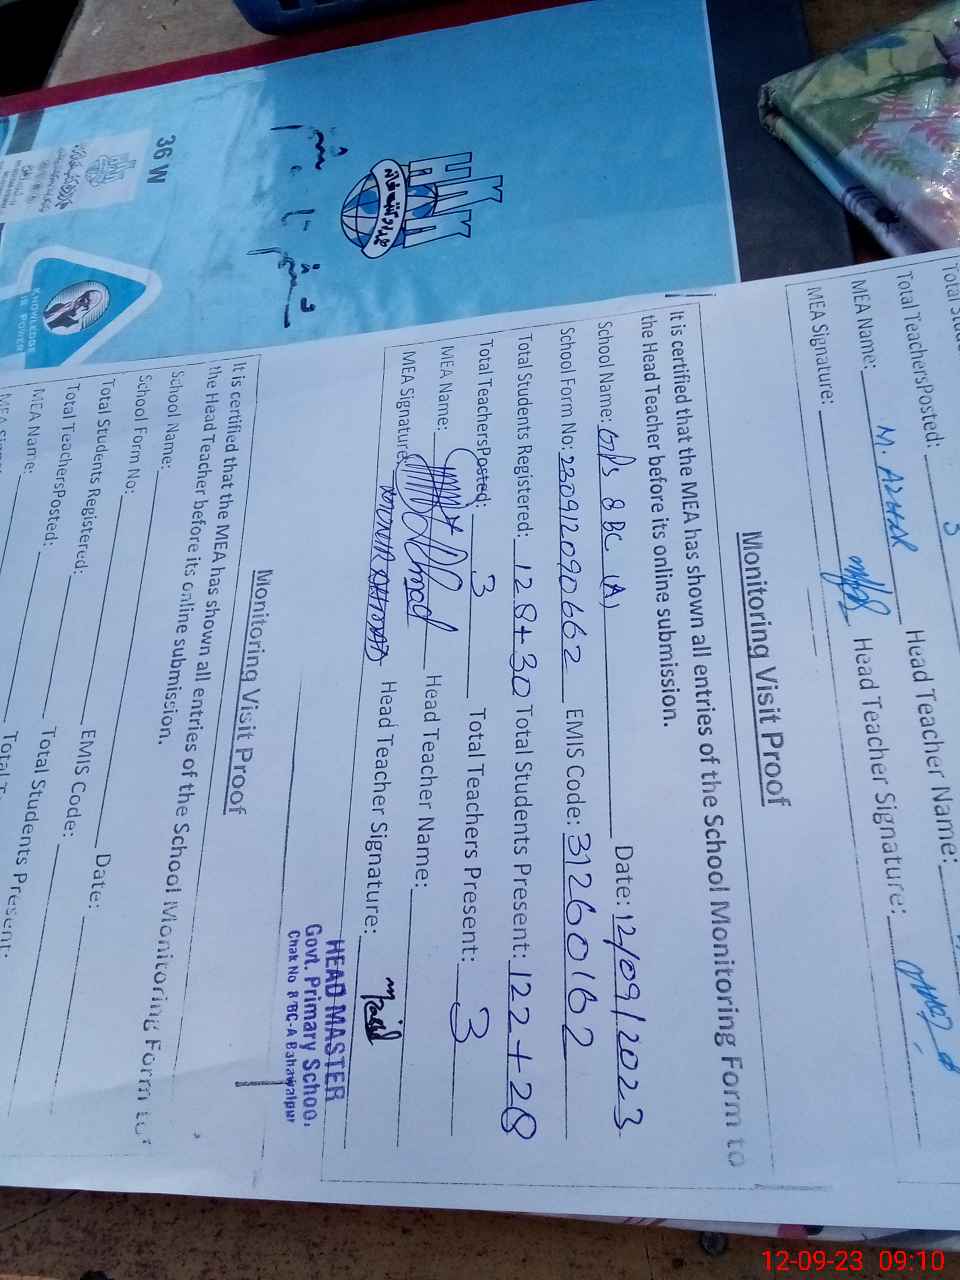 Total TeachersPosted: 3
MEA Name: M. AZHAR Head Teacher Name:
MEA Signature: Head Teacher Signature:
Monitoring Visit Proof
It is certified that the MEA has shown all entries of the School Monitoring Form to
the Head Teacher before its online submission.
School Name: GPS 8 BC (A) Date: 12/09/2023
School Form No: 230912090662 EMIS Code: 31260162
Total Students Registered: 128+30 Total Students Present: 122+28
Total TeachersPosted: 3 Total Teachers Present: 3
MEA Name: Head Teacher Name:
MEA Signature: Head Teacher Signature: Majid
HEAD MASTER
Govt. Primary School
Chak No 8 BC-A Bahawalpur
Monitoring Visit Proof
It is certified that the MEA has shown all entries of the School Monitoring Form to
the Head Teacher before its online submission.
School Name: Date:
School Form No: EMIS Code:
Total Students Registered: Total Students Present:
Total TeachersPosted:
MEA Name:
36 W
KNOWLEDGE
IS POWER
12-09-23 09:10